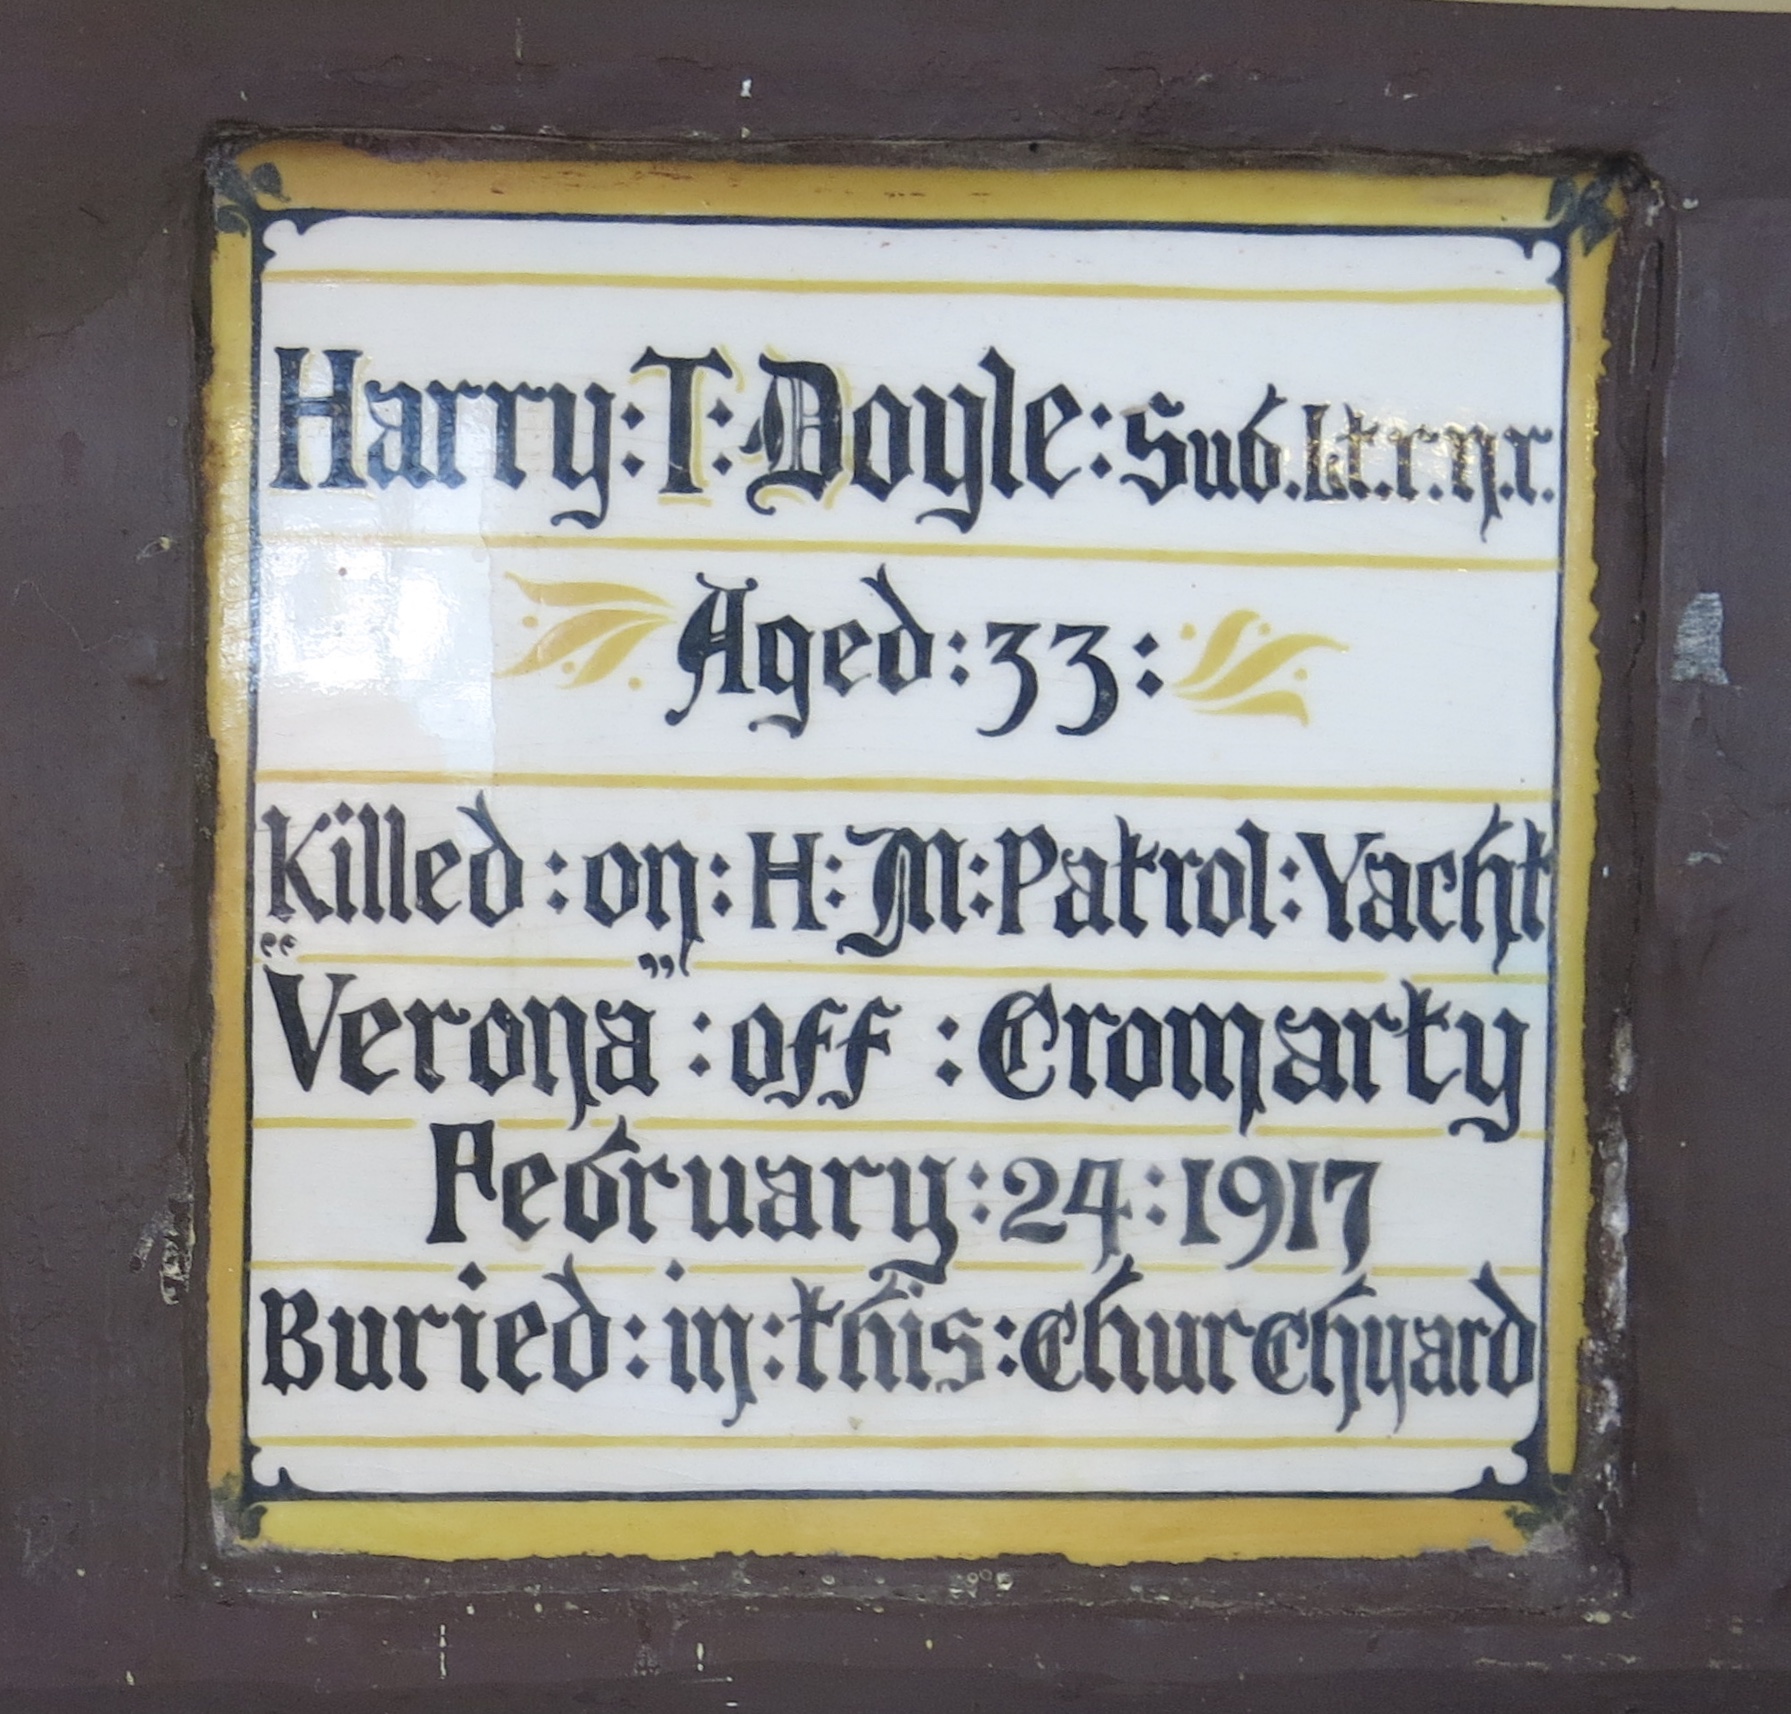 Harry:T:Doyle:Sub.Lt.r.n.r.
Aged:33:
Killed:on:H:M:Patrol:Yacht
“Verona”:off:Cromarty
February:24:1917
Buried:in:this:ChurChyard